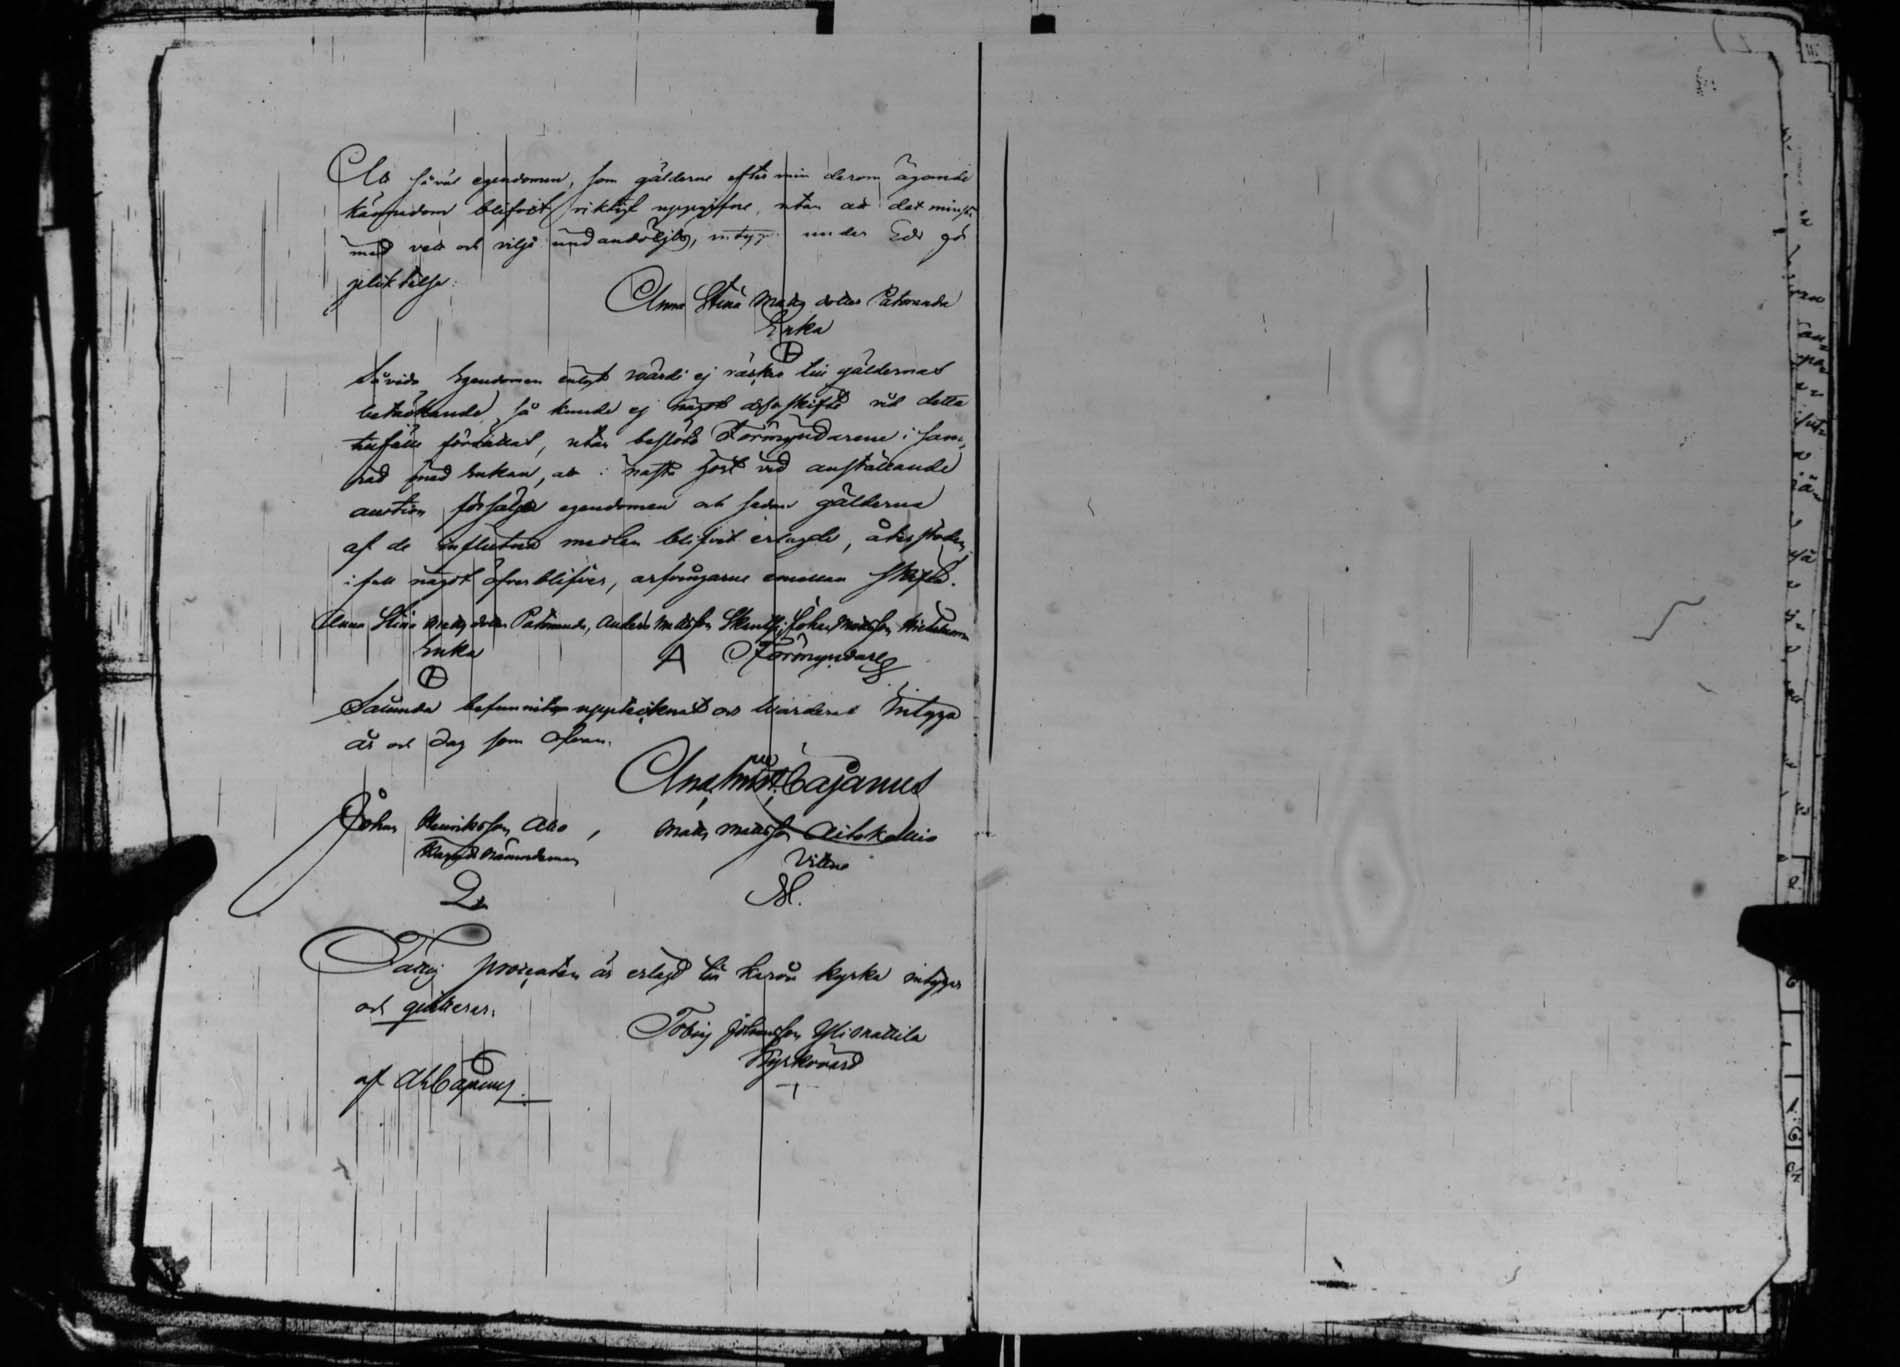 At såväl egendomen, som gälderne efter min derom ägande
kännedom blifvit riktigt uppgifne, utan at det minsta
med vett och vilje undandöljts, intygas under Eds för
pliktelse.
Anna Stina Matts dotter
Enka
Såvida Egendomen enligt värde ej räcker till gäldernas
betäckande, så kunde ej något arfsskifte vid detta
tillfälle förrättas, utan beslöts Förmyndarene i sam
råd med Enkan, att i nästa höst vid anställande
auction försälja egendomen och sedan gälderna
af de influtna medlen blifvit erlagde, återstoden,
i fall något öfverblifver, arfvingarne emellan skifta.
Anna Stina Matts dotter, Anders Mattsson, Johan Mattsson
Enka A Förmyndare
Sålunda befunnits uppteknat och Värderat Intyga
år och dag som ofvan.
Cajanus
Johan Henriksson Alio, Matts Mattsson Aitokallio
Härads Nämndeman Vittne
M.
Fattig procenten är erlagd till kyrka intygar
och qvitterar.
Tobias Johansson Yliskallila
Kyrkovärd
af Ah Cajanus